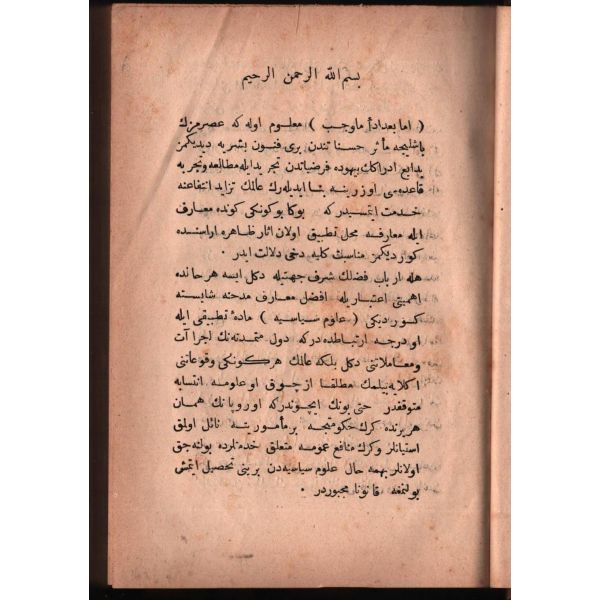 بسم الله الرحمن الرحيم
( اما بعد ادأ ماوجب ) معلوم اوله كه عصرمزك
باشليجه مآثر حسناتندن برى فنون بشريه ديديكمز
بدايع ادراكك بيهوده فرضياتدن تجريد ايله مطالعه وتجربه
قاعده‌سى اوزرينه بنا ايديله‌رك عالمك تزايد انتفاعنه
خدمت ايتمسيدر كه بوكا بوكونكى كونده معارف
ايله معارفه محل تطبيق اولان آثار ظاهره اراسنده
كورديكمز مناسبت كليه دخى دلالت ايدر .
هله ارباب فضلك شرف جهتيله دكل ايسه هر حالده
اهميتى اعتباريله افضل معارف مدحنه شايسته
كورديكى ( علوم سياسيه ) ماده تطبيقى ايله
او درجه ارتباطده در كه دول متمدنه‌نك اجراآت
ومعاملاتنى دكل بلكه عالمك هر كونكى وقوعاتنى
اكلايه‌بيلمك مطلقا از چوق او علومه انتسابه
متوقفدر حتى بونك ايچوندر كه اوروپانك همان
هر يرنده كرك حكومتجه بر مأموريته نائل اولمق
استيانلر وكرك منافع عموميه متعلق خدمتلرده بولنه‌جق
اولانلر بهمه حال علوم سياسيه‌دن برينى تحصيل ايتمش
بولنمغه قانونا مجبوردر .